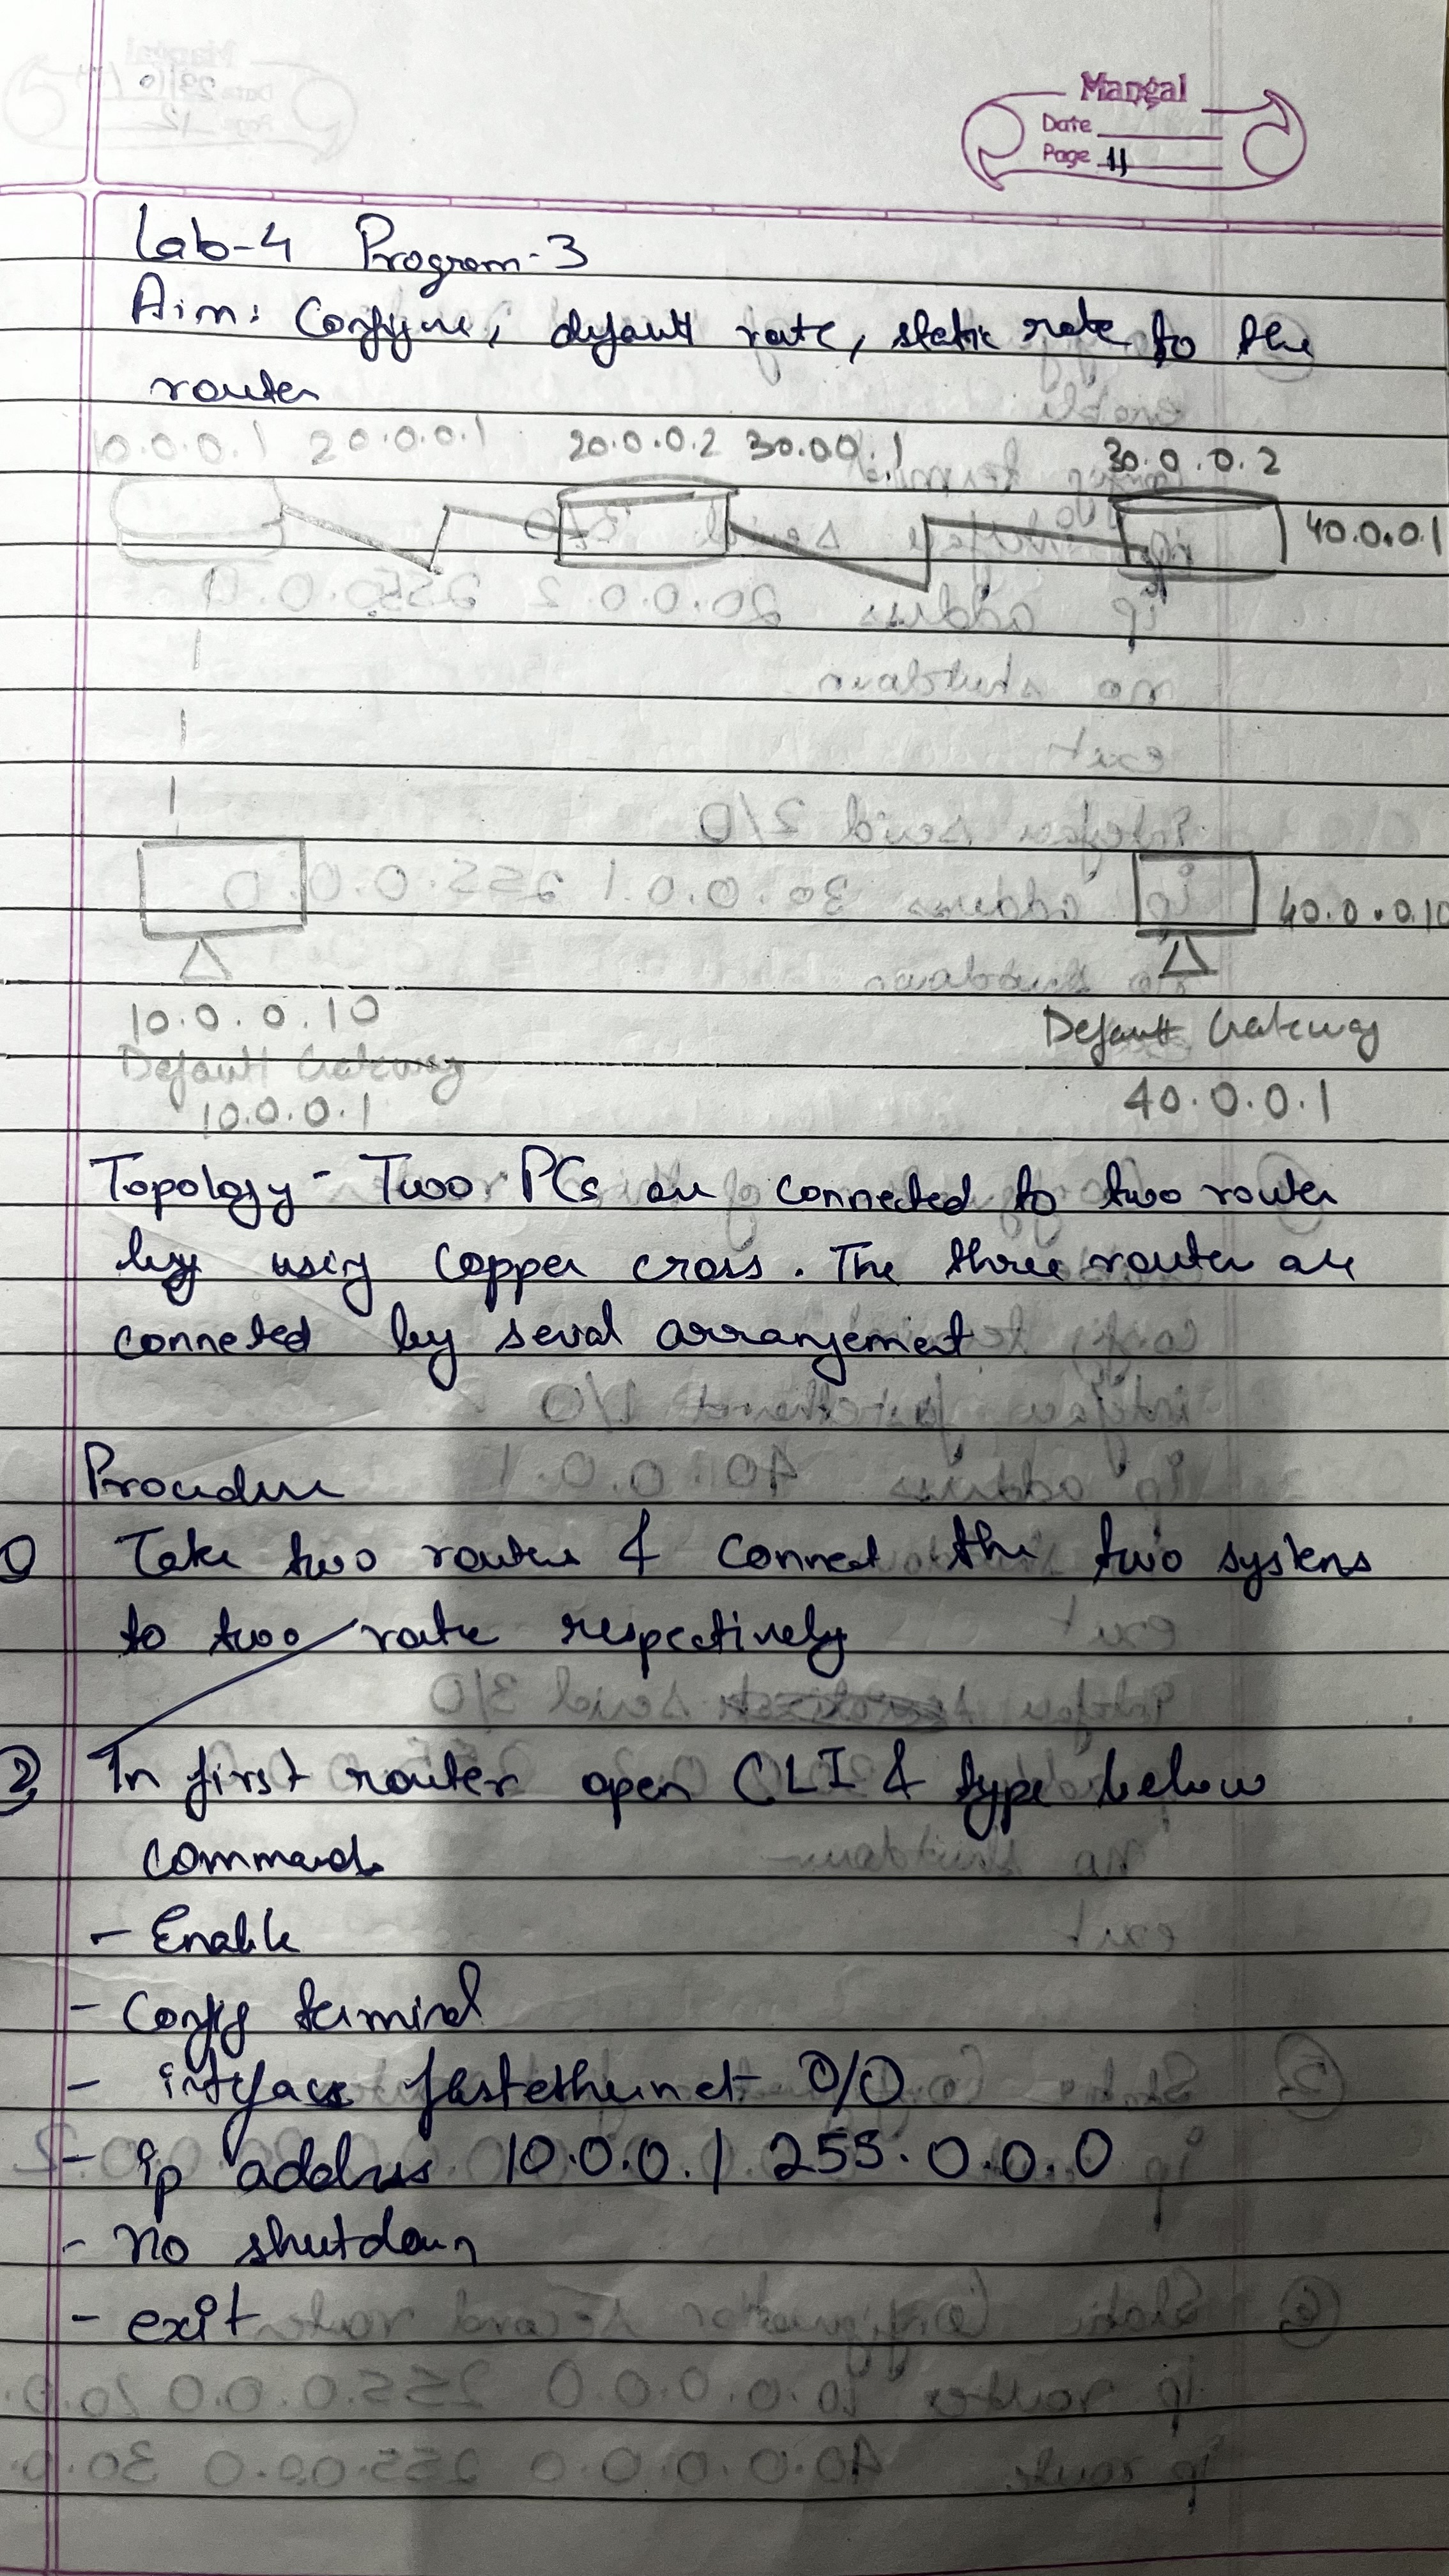 Mangal
Date
Page 11
Lab-4 Program-3
Aim: Configure, default rate, static rate to the
router
10.0.0.1 20.0.0.1 20.0.0.2 30.0.0.1 30.0.0.2
40.0.0.1
40.0.0.10
10.0.0.10
Default Gateway
10.0.0.1
Default Gateway
40.0.0.1
Topology - Two PCs are connected to two router
by using copper cross. The three router are
connected by serial arrangement
Procedure
① Take two router & connect the two systems
to two router respectively
② In first router open CLI & type below
commands
- Enable
- Config terminal
- interface fastethernet 0/0
- ip address 10.0.0.1 255.0.0.0
- no shutdown
- exit